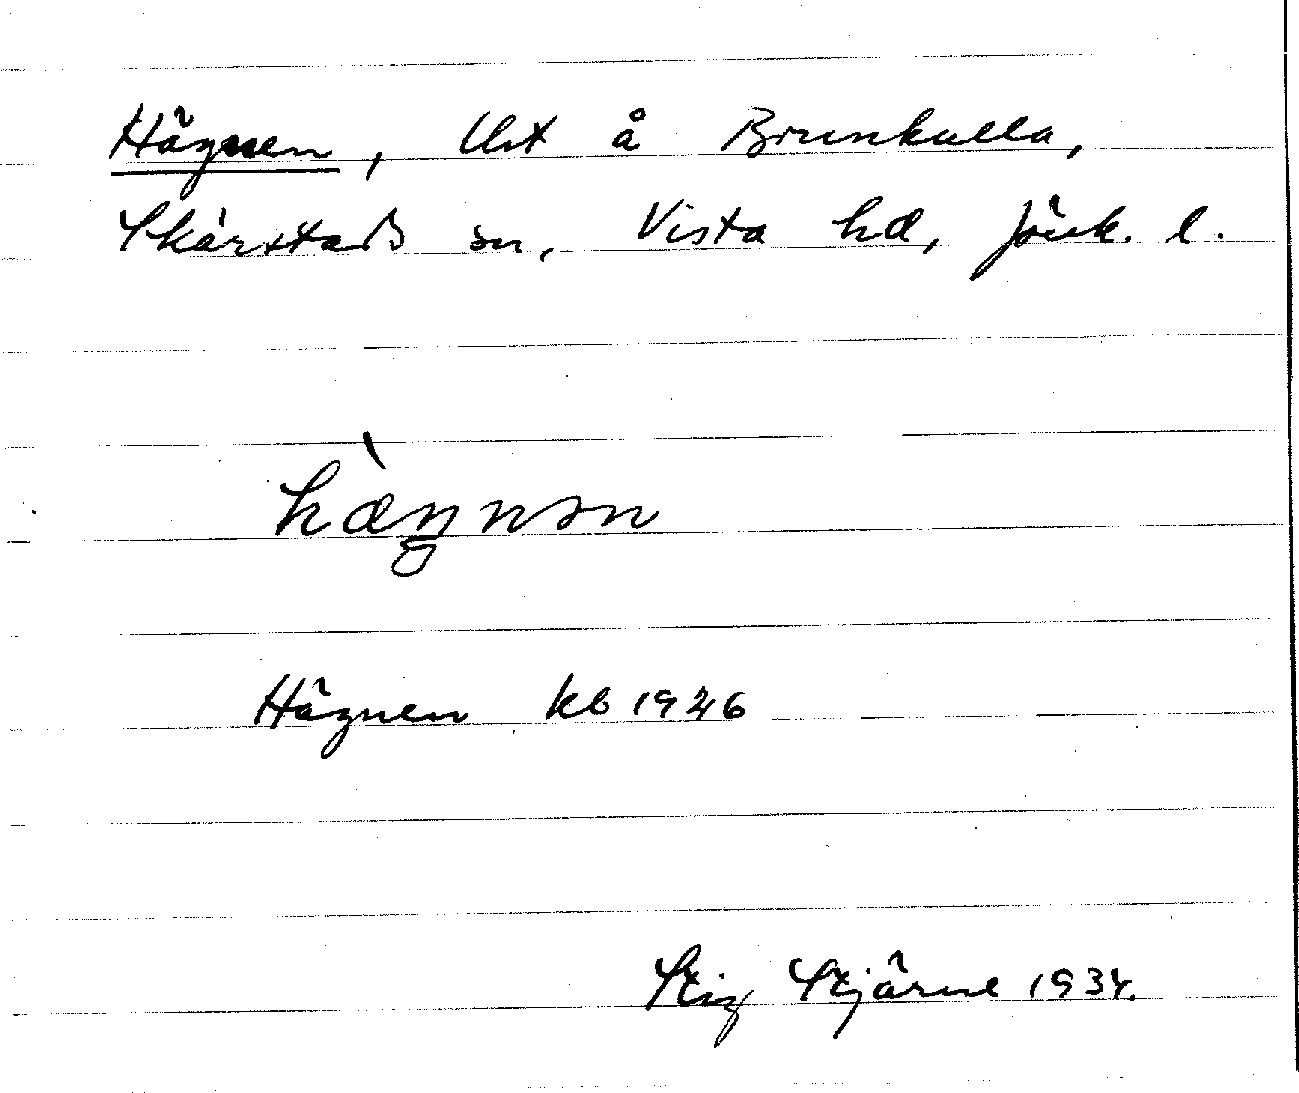 Hägnen, Uet å Brunkulla,
Skärstads sn, Vista hd, Jönk. l.
hæ̀ŋnən
Hägnen kb 1926
Stig Stjärne 1934.